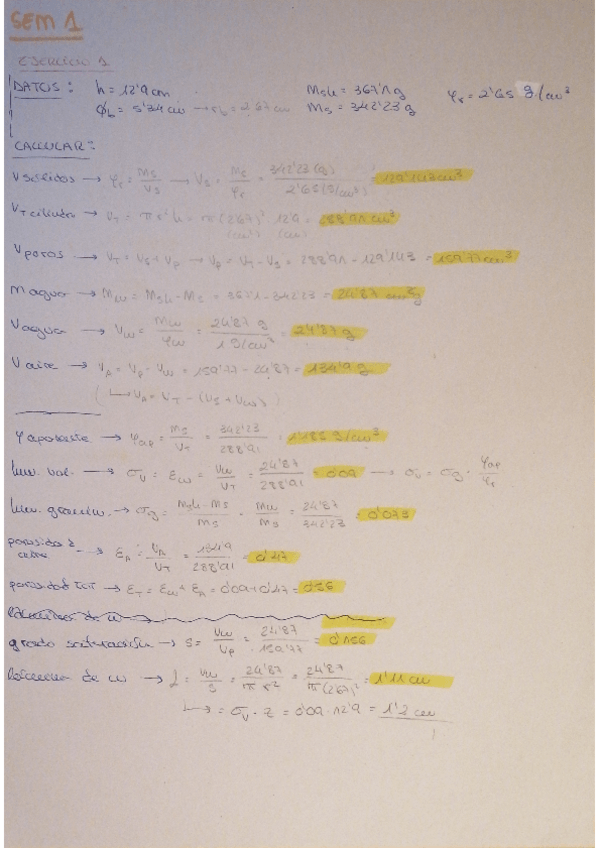 SEM 1
EJERCICIO 1
DATOS: h = 12'9 cm Msh = 367'1 g φr = 2'65 g/cm³
Øb = 5'34 cm → rb = 2'67 cm Ms = 342'23 g
CALCULAR:
V sólidos → φr = Ms/Vs → Vs = Ms/φr = 342'23 (g)/2'65 (g/cm³) = 129'143 cm³
VT cilindro → VT = π r² h = π (2'67)² 12'9 = 288'91 cm³
(cm)² (cm)
V poros → VT = Vs + Vp → Vp = VT - Vs = 288'91 - 129'143 = 159'77 cm³
m agua → Mw = Msh - Ms = 367'1 - 342'23 = 24'87 g
V agua → Vw = Mw/φw = 24'87 g/1 g/cm³ = 24'87 g
V aire → VA = Vp - Vw = 159'77 - 24'87 = 134'9 g
(↳ VA = VT - (Vs + Vw))
φ aparente → φap = Ms/VT = 342'23/288'91 = 1'185 g/cm³
hum. vol. → σv = Ew = Vw/VT = 24'87/288'91 = 0'09 → σv = σg · φap/φr
hum. gravim. → σg = Msh - Ms/Ms = Mw/Ms = 24'87/342'23 = 0'073
porosidad aire → EA = VA/VT = 134'9/288'91 = 0'47
porosidad TOT → ET = Ew + EA = 0'09 + 0'47 = 0'56
grado saturación → S = Vw/Vp = 24'87/159'77 = 0'156
de w → L = Vw/S = 24'87/π r² = 24'87/π (2'67)² = 1'11 cm
↳ = σv · z = 0'09 · 12'9 = 1'2 cm